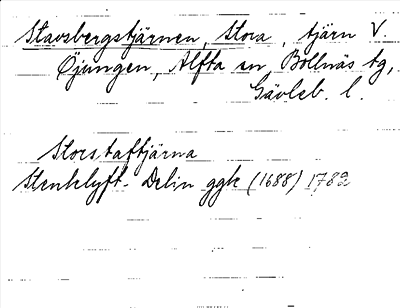 Stavsbergstjärnen, Stora, tjärn V.
Öjungen, Alfta sn, Bollnäs tg,
Gävleb. l.
Storstaftjärna
Stenklyft- Delin ggk (1688) 1782